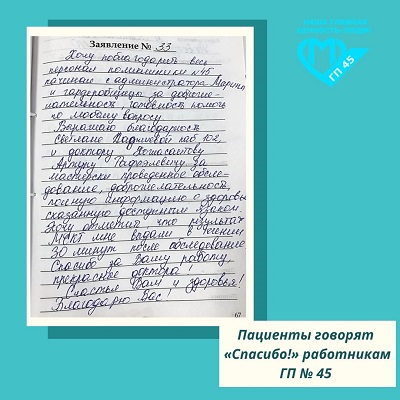 НАША СТИХИЯ
СПАСАТЬ ЛЮДЕЙ
ГП 45
Заявление № 33
Хочу поблагодарить весь
персонал поликлиники №45
начиная с администратора Марины
и гардеробщицы за доброже-
лательность, готовность помочь
по любому вопросу.
Выражаю благодарность
Светлане каб 102,
и доктору
Артуру Тадеозевичу за
мастерски проведенное обсле-
дование, доброжелательность,
полную информацию о здоровье
сказанную доступным языком.
Хочу отметить что результат
МСКТ мне выдали в течении
30 минут после обследование
Спасибо за Вашу работу,
прекрасные доктора!
Счастья Вам и здоровья!
Благодарю Вас!
Пациенты говорят
«Спасибо!» работникам
ГП № 45